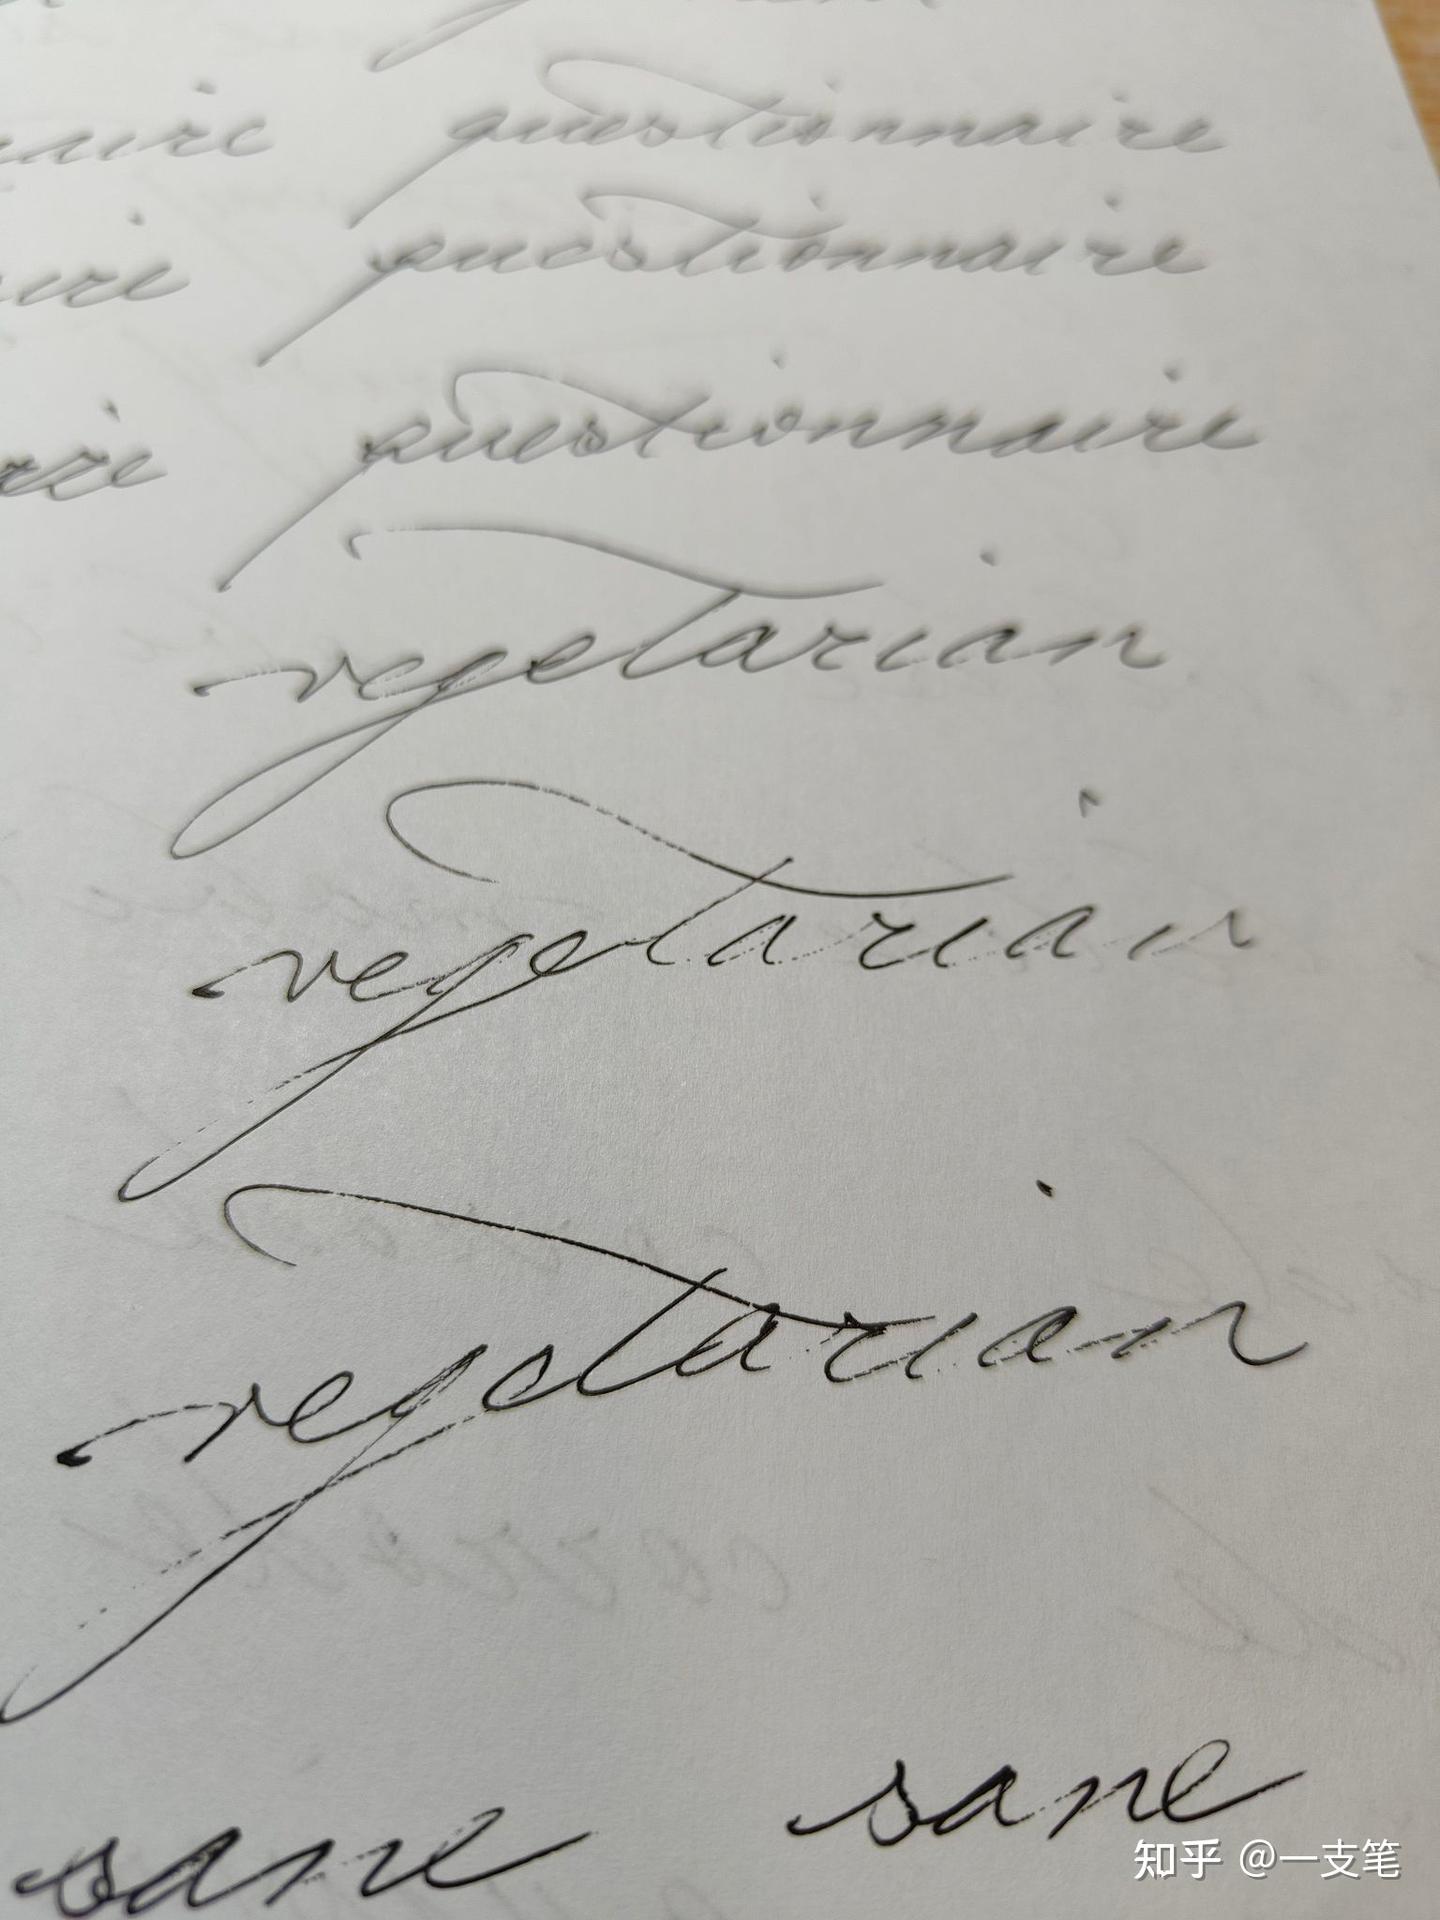 questionnaire
questionnaire
questionnaire
vegetarian
vegetarian
vegetarian
sane sane
知乎 @一支笔